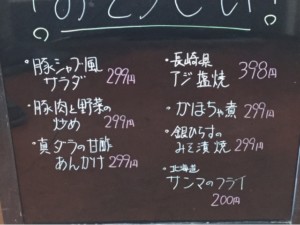 ・豚シャブ風
サラダ 299円
・豚肉と野菜の
炒め 299円
・真ダラの甘酢
あんかけ 299円
・長崎県
アジ塩焼 398円
・かぼちゃ煮 299円
・銀ひらすの
みそ漬焼 299円
・北海道
サンマのフライ
200円